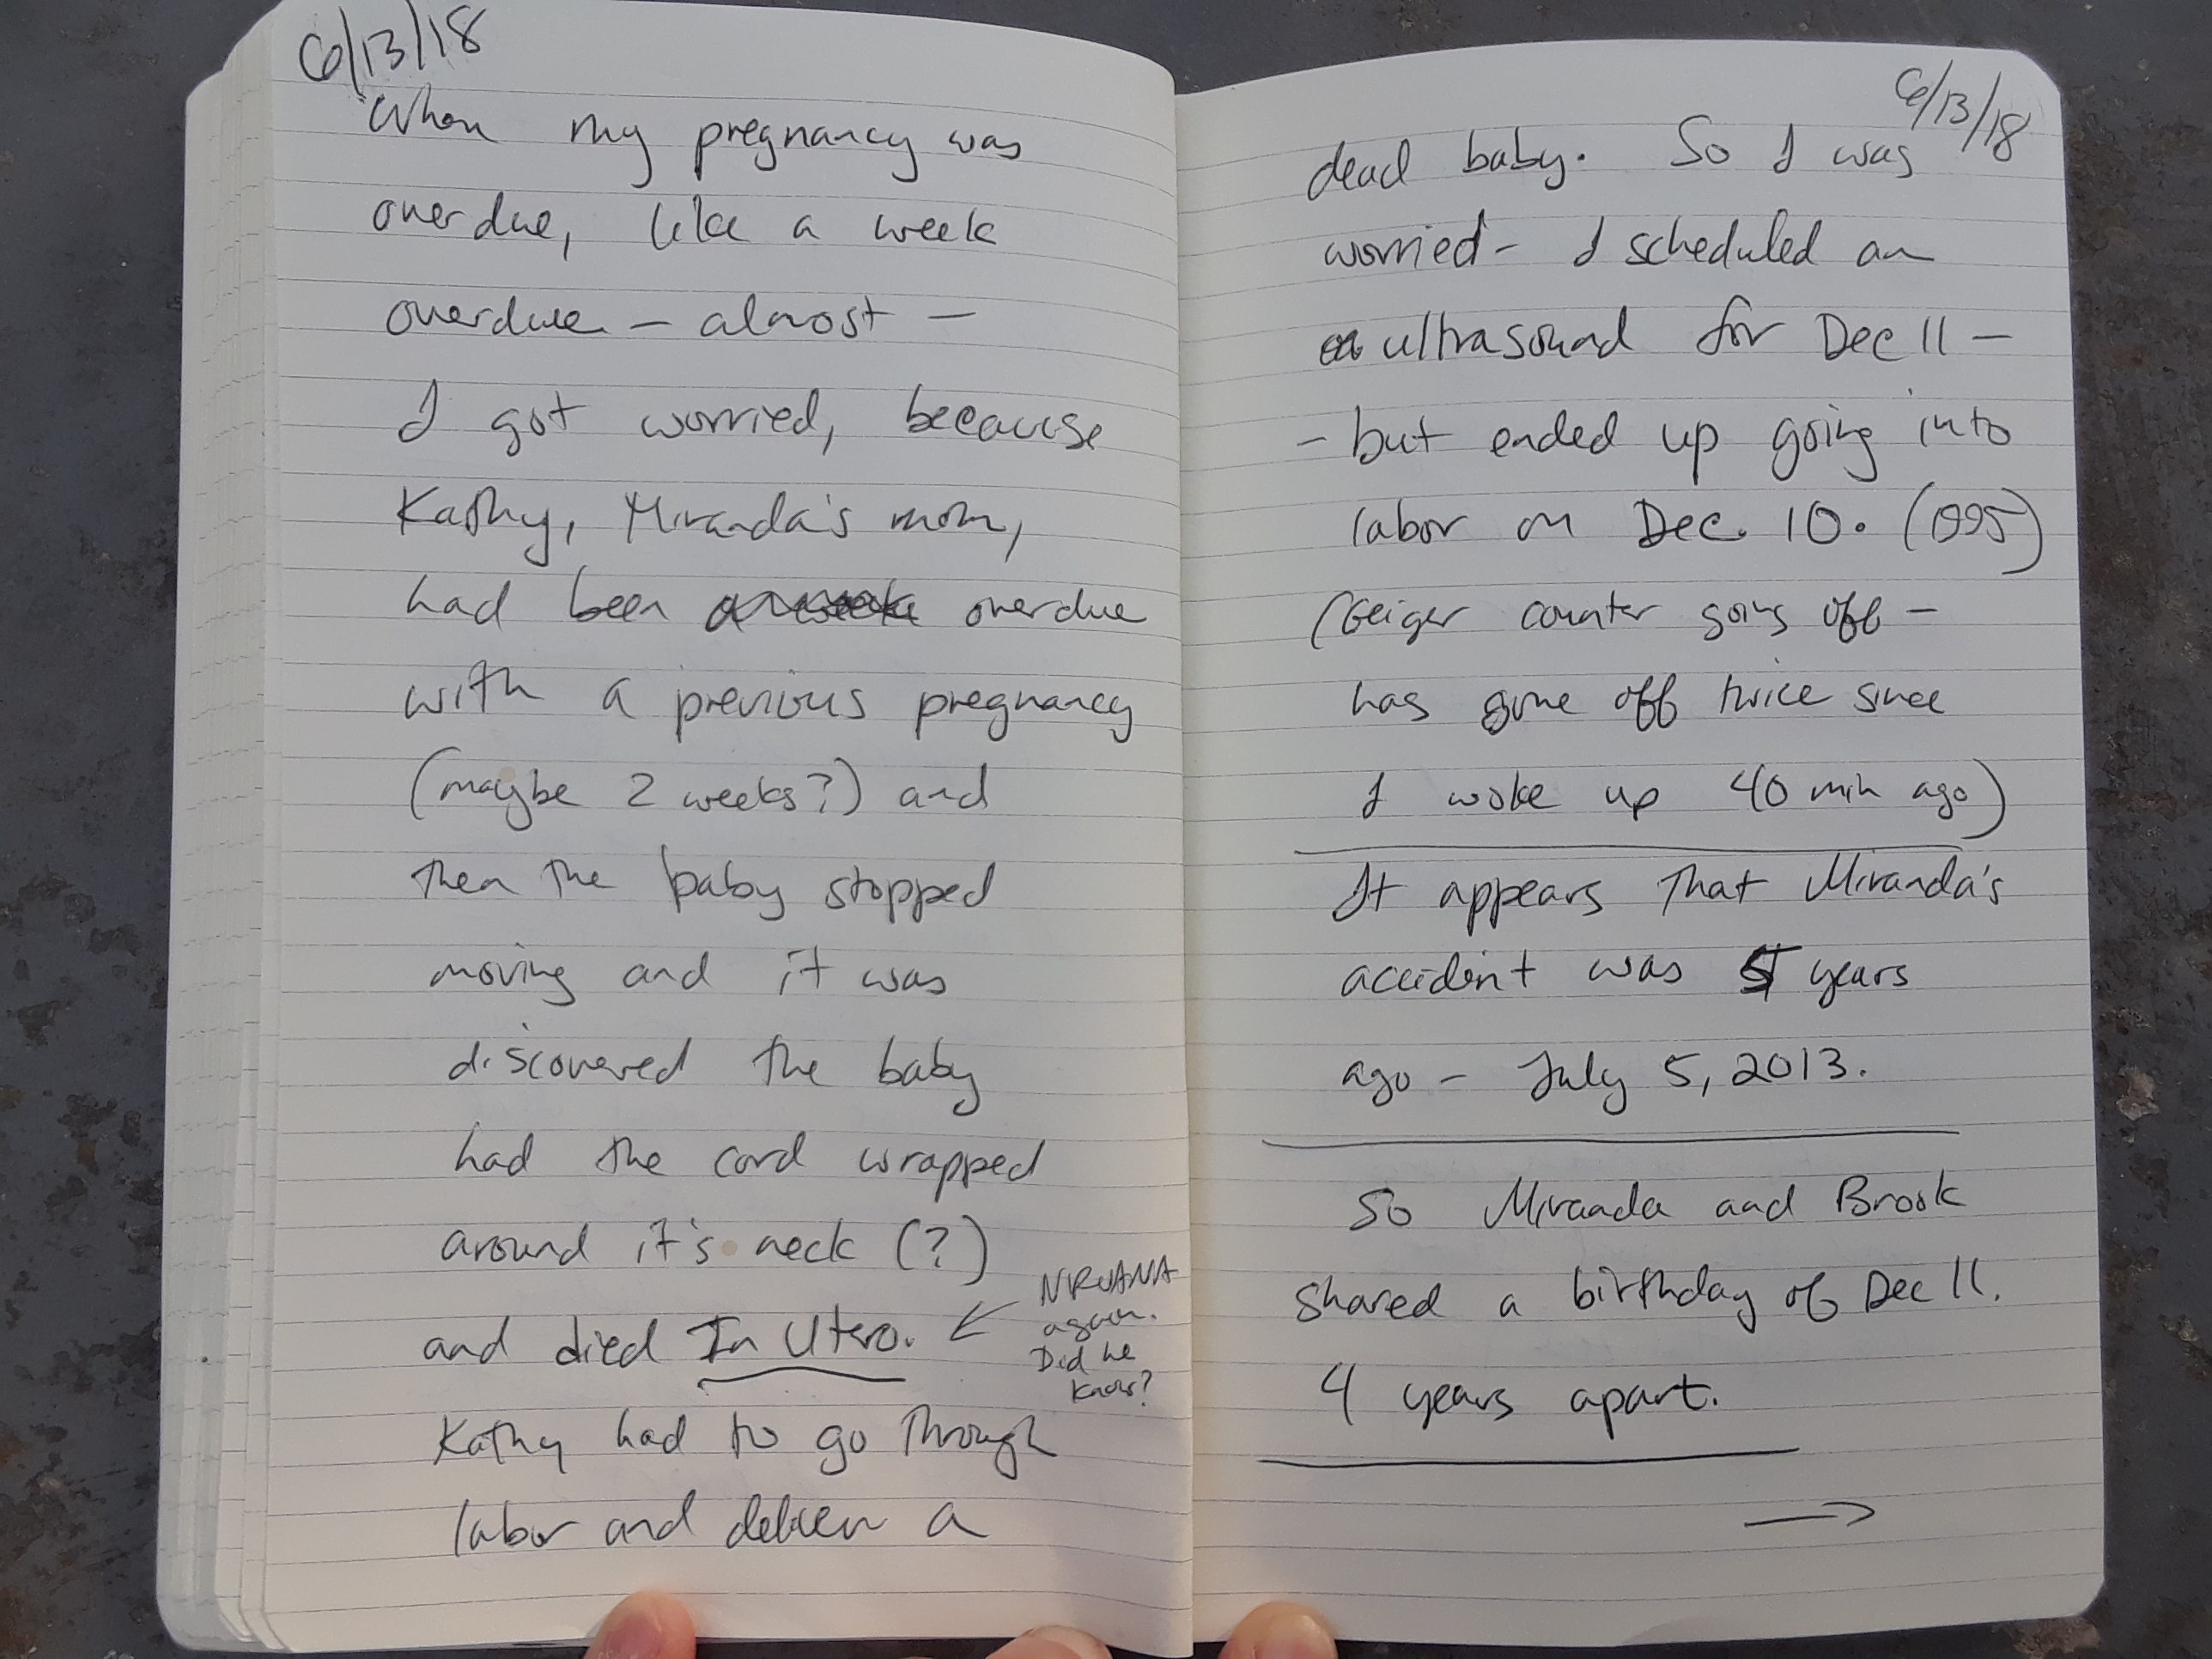 6/13/18
When my pregnancy was
overdue, like a week
overdue – almost –
I got worried, because
Kathy, Miranda's mom,
had been a week overdue
with a previous pregnancy
(maybe 2 weeks?) and
then the baby stopped
moving and it was
discovered the baby
had the cord wrapped
around it's neck (?)
and died In Utero. ←
NIRVANA
again.
Did he
know?
Kathy had to go through
labor and deliver a
6/13/18
dead baby. So I was
worried – I scheduled an
ultrasound for Dec 11 –
– but ended up going into
labor on Dec. 10. (1995)
(Geiger counter going off –
has gone off twice since
I woke up 40 min ago)
It appears that Miranda's
accident was 5 years
ago – July 5, 2013.
So Miranda and Brook
shared a birthday of Dec 11.
4 years apart.
→